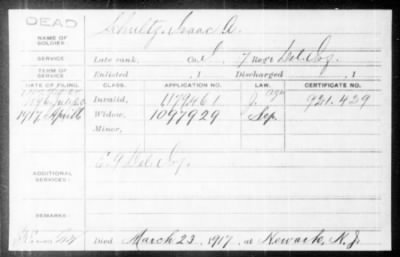 DEAD
NAME OF SOLDIER: Schultz, Isaac A.
SERVICE: Late rank, Co. I, 7 Reg't Del. Inf.
TERM OF SERVICE: Enlisted , 1 Discharged , 1
DATE OF FILING. CLASS. APPLICATION NO. LAW. CERTIFICATE NO.
Invalid, 1179461 921.429
1917 April Widow, 1097929 Sep.
Minor,
ADDITIONAL SERVICES: Del. Inf.
REMARKS:
Died March 23, 1917, at Newark, N.J.